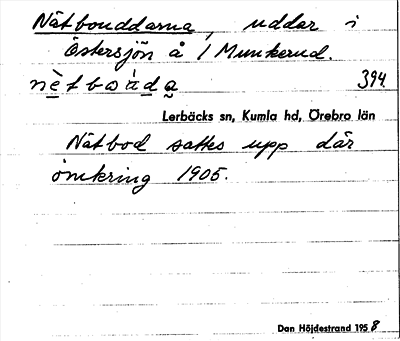 Nätbouddarna, uddar i
Östersjön å 1 Munkerud.
394.
Lerbäcks sn, Kumla hd, Örebro län
Nätbod sattes upp där
omkring 1905.
Dan Höjdestrand 1958